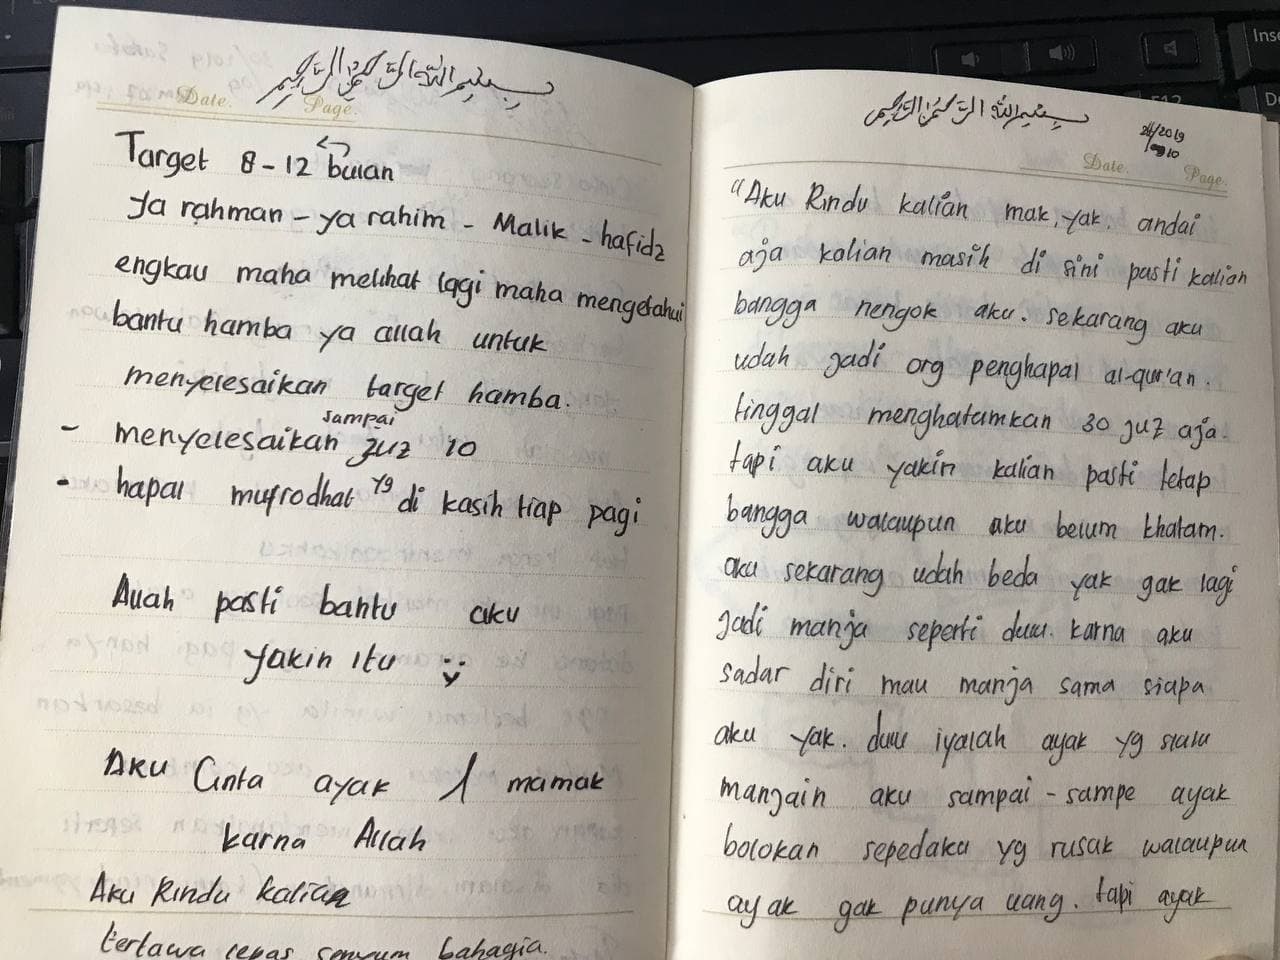 بسم الله الرحمن الرحيم
Date. Page.
Target 8-12 bulan
Ya rahman - ya rahim - Malik - hafidz
engkau maha melihat lagi maha mengetahui
bantu hamba ya allah untuk
menyelesaikan target hamba.
- menyelesaikan sampai juz 10
- hapal mufrodhat yg di kasih tiap pagi
Allah pasti bantu aku
Yakin itu
Aku Cinta ayak & mamak
karna Allah
Aku Rindu kalian
tertawa lepas senyum bahagia.
بسم الله الرحمن الرحيم
24/2019
10
Date. Page.
"Aku Rindu kalian mak, yak. andai
aja kalian masih di sini pasti kalian
bangga nengok aku. sekarang aku
udah jadi org penghapal al-qur'an.
tinggal menghatamkan 30 juz aja.
tapi aku yakin kalian pasti tetap
bangga walaupun aku belum khatam.
aku sekarang udah beda yak gak lagi
jadi manja seperti dulu. karna aku
sadar diri mau manja sama siapa
aku yak. dulu iyalah ayak yg slalu
manjain aku sampai-sampe ayak
bolokan sepedaku yg rusak walaupun
ayak gak punya uang. tapi ayak
Inse
F12